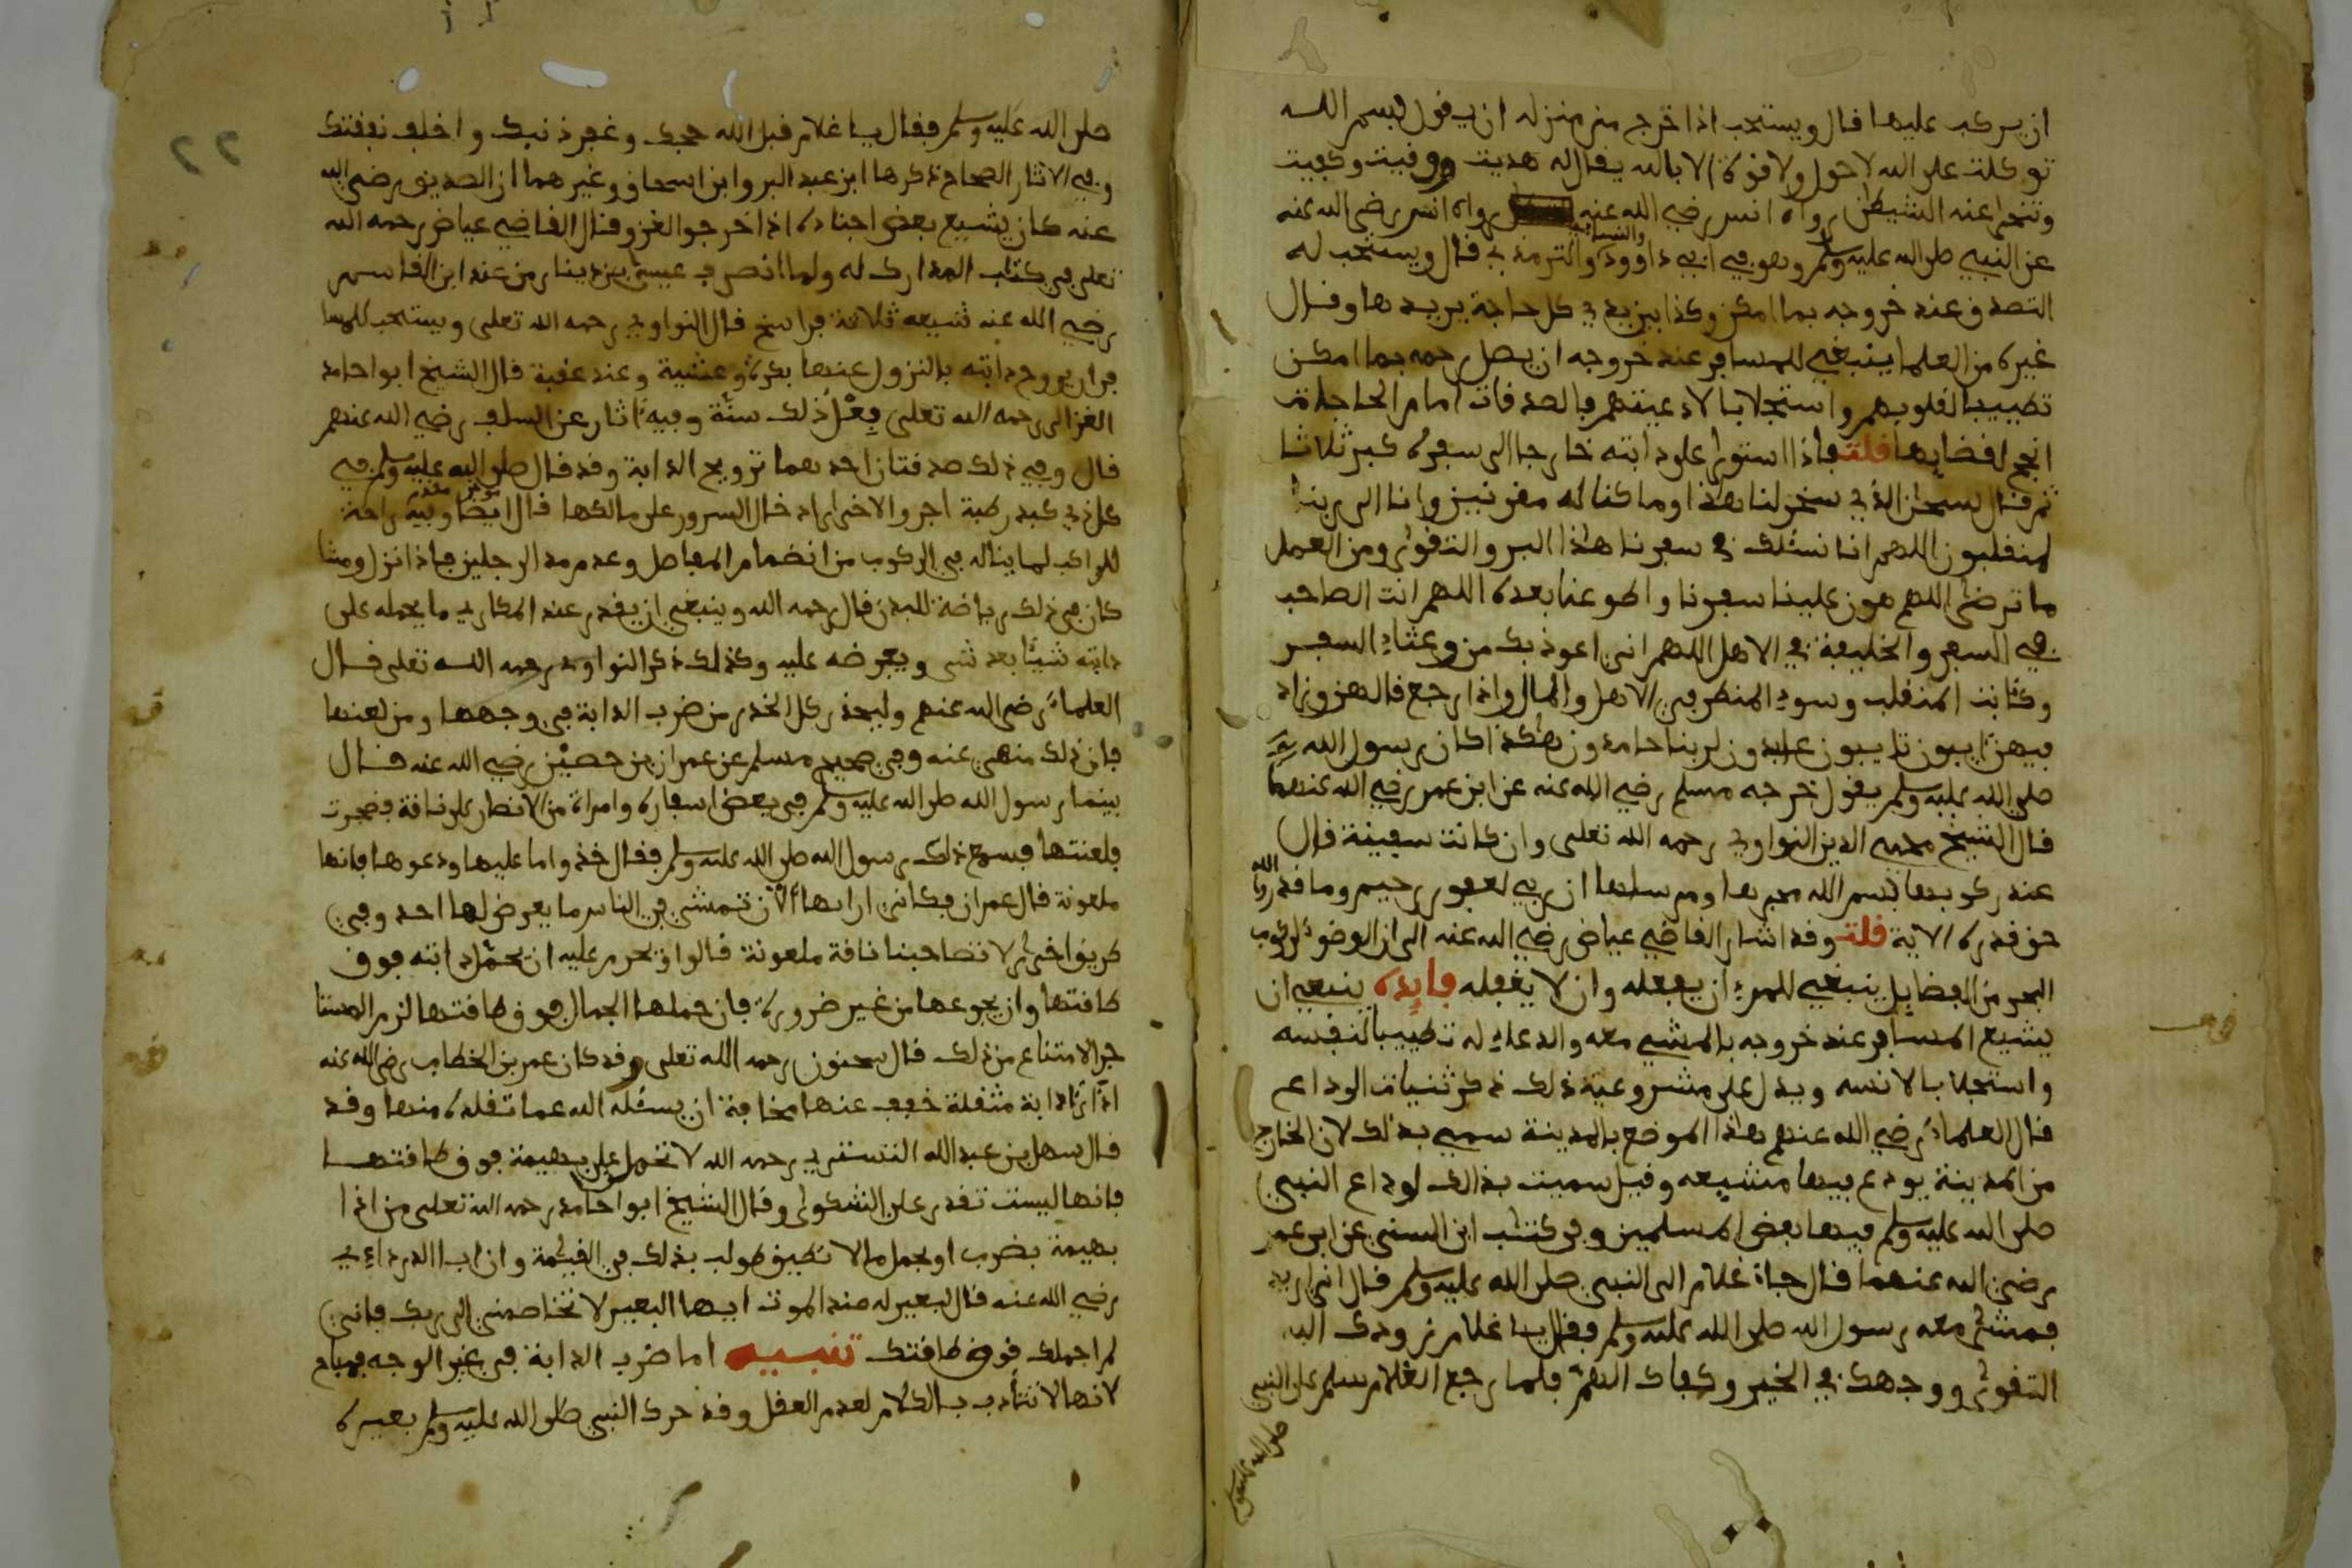 ان يركب عليها قال ويستحب اذا خرج من منزله ان يقول بسم الله
توكلت على الله لا حول ولا قوة الا بالله يقال له هديت ووقيت وكفيت
وتنحى عنه الشيطن رواه انس رضي الله عنه رواه انس رضي الله عنه
عن النبي صلى الله عليه وسلم وهو في ابي داوود والنسائي والترمذي قال ويستحب له
التصدق عند خروجه بما امكن وكذا بين يدي كل حاجة يريدها وقال
غيره من العلما ينبغي للمسافر عند خروجه ان يصل رحمه بما امكن
تطييبا لقلوبهم واستجلابا لادعيتهم فالصدقات امام الحاجات
انجح لقضايها قلت فاذا استوى على دابته خارجا الى سفره كبر ثلاثا
ثم قال سبحن الذي سخر لنا هذا وما كنا له مقرنين وانا الى ربنا
لمنقلبون اللهم انا نسئلك في سفرنا هذا البر والتقوى ومن العمل
ما ترضى اللهم هون علينا سفرنا واطو عنا بعده اللهم انت الصاحب
في السفر والخليفة في الاهل اللهم اني اعوذ بك من وعثاء السفر
وكئابت المنقلب وسوء المنظر في الاهل والمال واذا رجع قالهن وزاد
فيهن ءايبون تايبون عابدون لربنا حامدون هكذا كان رسول الله
صلى الله عليه وسلم يقول خرجه مسلم رضي الله عنه عن ابن عمر رضي الله عنهما
قال الشيخ محيي الدين النواوي رحمه الله تعلى وان كانت سفينة قال
عند ركوبها بسم الله مجريها ومرساها ان ربي لغفور رحيم وما قدروا الله
حق قدره الاية قلت وقد اشار القاضي عياض رضي الله عنه الى ان الوضوء لركوب
البحر من الفضايل ينبغي للمرء ان يفعله وان لا يغفله فايده ينبغي ان
يشيع المسافر عند خروجه بالمشي معه والدعاء له تطييبا لنفسه
واستجلابا لانسه ويدل على مشروعية ذلك ذكر ثنيات الوداع
قال العلماء رضي الله عنهم هذا الموضع بالمدينة سمي بذلك لان الخارج
من المدينة يودع فيها مشيعه وقيل سميت بذالك لوداع النبي
صلى الله عليه وسلم فيها بعض المسلمين وفي كتب ابن السني عن ابن عمر
رضي الله عنهما قال جاء غلام الى النبي صلى الله عليه وسلم قال اني اريد
فمشى معه رسول الله صلى الله عليه وسلم فقال يا غلام زودك الله
التقوى ووجهك في الخير وكفاك الهم فلما رجع الغلام سلم على النبي
صلى الله عليه وسلم
صلى الله عليه وسلم فقال يا غلام قبل الله حجك وغفر ذنبك واخلف نفقتك
وفي الاثار الصحاح ذكرها ابن عبد البر وابن اسحاق وغيرهما ان الصديق رضي الله
عنه كان يشيع بعض اجناده اذا خرجوا لغزو قال القاضي عياض رحمه الله
تعلى في كتاب المدارك له ولما انصرف عيسى بن دينار من عند ابن القاسم
رضي الله عنه شيعه ثلاثة فراسخ قال النواوي رحمه الله تعلى ويستحب للمسا
فر ان يروح دابته بالنزول عنها بكرة وعشية وعند عقبة قال الشيخ ابو حامد
الغزالي رحمه الله تعلى فعل ذلك سنة وفيه ءاثار عن السلف رضي الله عنهم
قال وفي ذلك صدقتان احدهما ترويح الدابة وقد قال صلى الله عليه وسلم في
كل ذي كبد رطبة اجر والاخرى ادخال السرور على مالكها قال ايضا وفيه راحة
للراكب لما يناله في الركوب من انضمام المفاصل وعدم مد الرجلين فاذا نزل ومشا
كان في ذلك رياضة للبدن قال رحمه الله وينبغي ان يقدر عند المكاري ما يحمله على
دابته شيئا بعد شى ويعرضه عليه وكذلك ذكر النواوي رحمه الله تعلى قال
العلماء رضي الله عنهم وليحذر كل الحذر من ضرب الدابة في وجهها ومن لعنها
فان ذلك منهي عنه وفي صحيح مسلم عن عمران بن حصين رضي الله عنه قال
بينما رسول الله صلى الله عليه وسلم في بعض اسفاره وامراة من الانصار على ناقة فضجرت
فلعنتها فسمع ذلك رسول الله صلى الله عليه وسلم فقال خذوا ما عليها ودعوها فانها
ملعونة قال عمران فكاني اراها الان تمشي في الناس ما يعرض لها احد وفي
طريق اخرى لا تصاحبنا ناقة ملعونة قالوا ويحرم عليه ان يحمل دابته فوق
طاقتها وان يجوعها من غير ضرورة فان حملها الجمال فوق طاقتها لزم المستا
جر الامتناع من ذلك قال سحنون رحمه الله تعلى وقد كان عمر بن الخطاب رضي الله عنه
اذا رءا دابة مثقلة خفف عنها مخافة ان يسئله الله عما ثقله منها وقد
قال سهل بن عبد الله التستري رحمه الله لا تحمل على بهيمة فوق طاقتها
فانها ليست تقدر على الشكوى وقال الشيخ ابو حامد رحمه الله تعلى من اذا
بهيمة بضرب او بحمل ما لا تطيق طولب بذلك في القيمة وان ابا الدرداء
رضي الله عنه قال لبعير له عند الموت ايها البعير لا تخاصمني الى ربك فاني
لم احملك فوق طاقتك تنبيه اما ضرب الدابة في غير الوجه فمباح
لانها لا تتأدب بالكلام لعدم العقل وقد حرك النبي صلى الله عليه وسلم بعيره